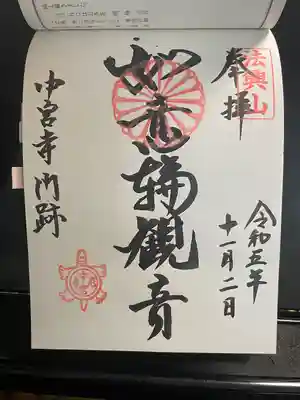 奉拝
法興山
令和五年
十一月二日
如意輪観音
中宮寺門跡